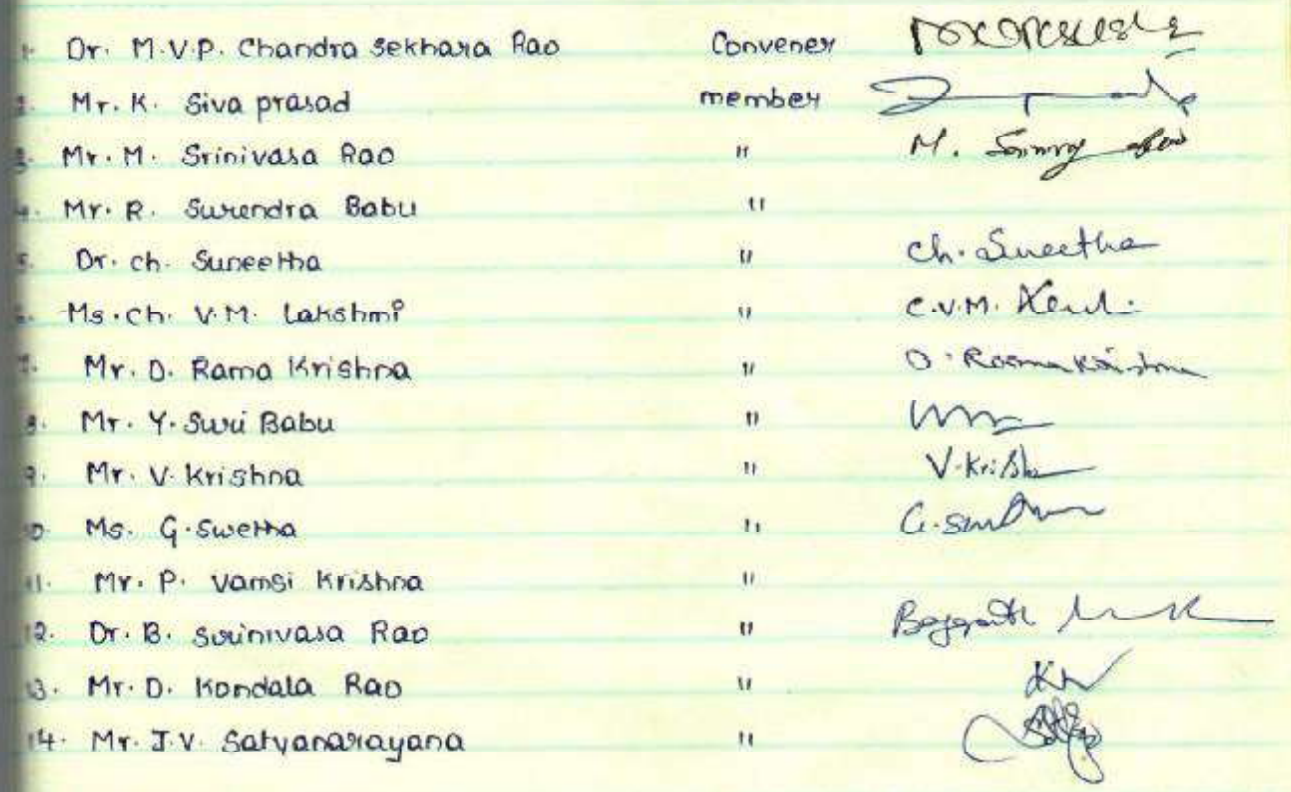 1. Dr. M.V.P. Chandra Sekhara Rao Convener
2. Mr. K. Siva prasad member
3. Mr. M. Srinivasa Rao " M.
4. Mr. R. Surendra Babu "
5. Dr. ch. Suneetha " Ch. Suneetha
6. Ms. ch. V.M. Lakshmi " C.V.M.
7. Mr. D. Rama Krishna " D. Rama Krishna
8. Mr. Y. Suri Babu "
9. Mr. V. Krishna " V. Krishna
10. Ms. G. Swetha " G.
11. Mr. P. Vamsi Krishna "
12. Dr. B. Srinivasa Rao "
13. Mr. D. Kondala Rao "
14. Mr. J.V. Satyanarayana "